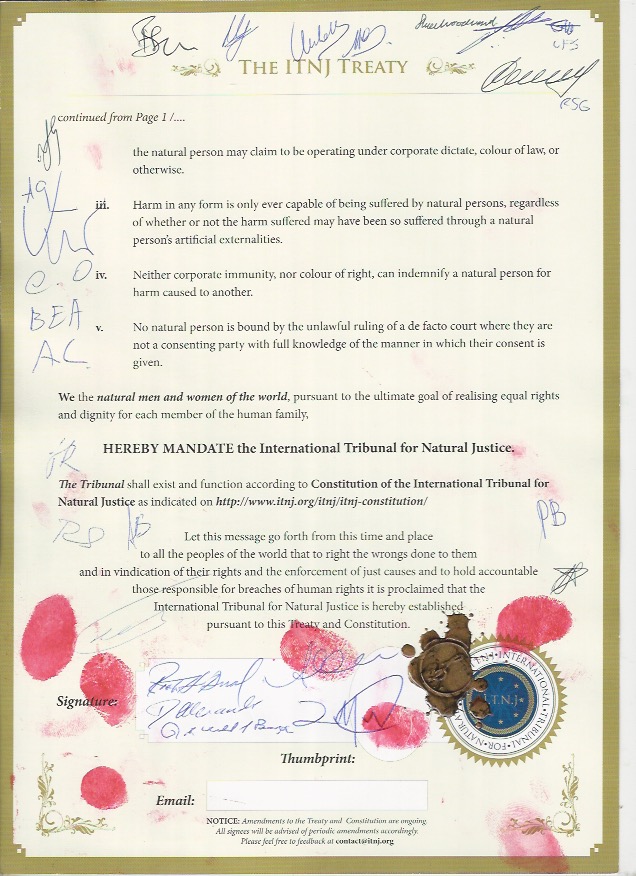 THE ITNJ TREATY
UFS
RSG
continued from Page 1 /....
the natural person may claim to be operating under corporate dictate, colour of law, or
otherwise.
iii. Harm in any form is only ever capable of being suffered by natural persons, regardless
of whether or not the harm suffered may have been so suffered through a natural
person's artificial externalities.
iv. Neither corporate immunity, nor colour of right, can indemnify a natural person for
harm caused to another.
BEA
v. No natural person is bound by the unlawful ruling of a de facto court where they are
not a consenting party with full knowledge of the manner in which their consent is
given.
AC.
We the natural men and women of the world, pursuant to the ultimate goal of realising equal rights
and dignity for each member of the human family,
HEREBY MANDATE the International Tribunal for Natural Justice.
The Tribunal shall exist and function according to Constitution of the International Tribunal for
Natural Justice as indicated on http://www.itnj.org/itnj/itnj-constitution/
PB
Let this message go forth from this time and place
to all the peoples of the world that to right the wrongs done to them
and in vindication of their rights and the enforcement of just causes and to hold accountable
those responsible for breaches of human rights it is proclaimed that the
International Tribunal for Natural Justice is hereby established
pursuant to this Treaty and Constitution.
Signature:
I.T.N.J.
Thumbprint:
Email:
NOTICE: Amendments to the Treaty and Constitution are ongoing.
All signees will be advised of periodic amendments accordingly.
Please feel free to feedback at contact@itnj.org